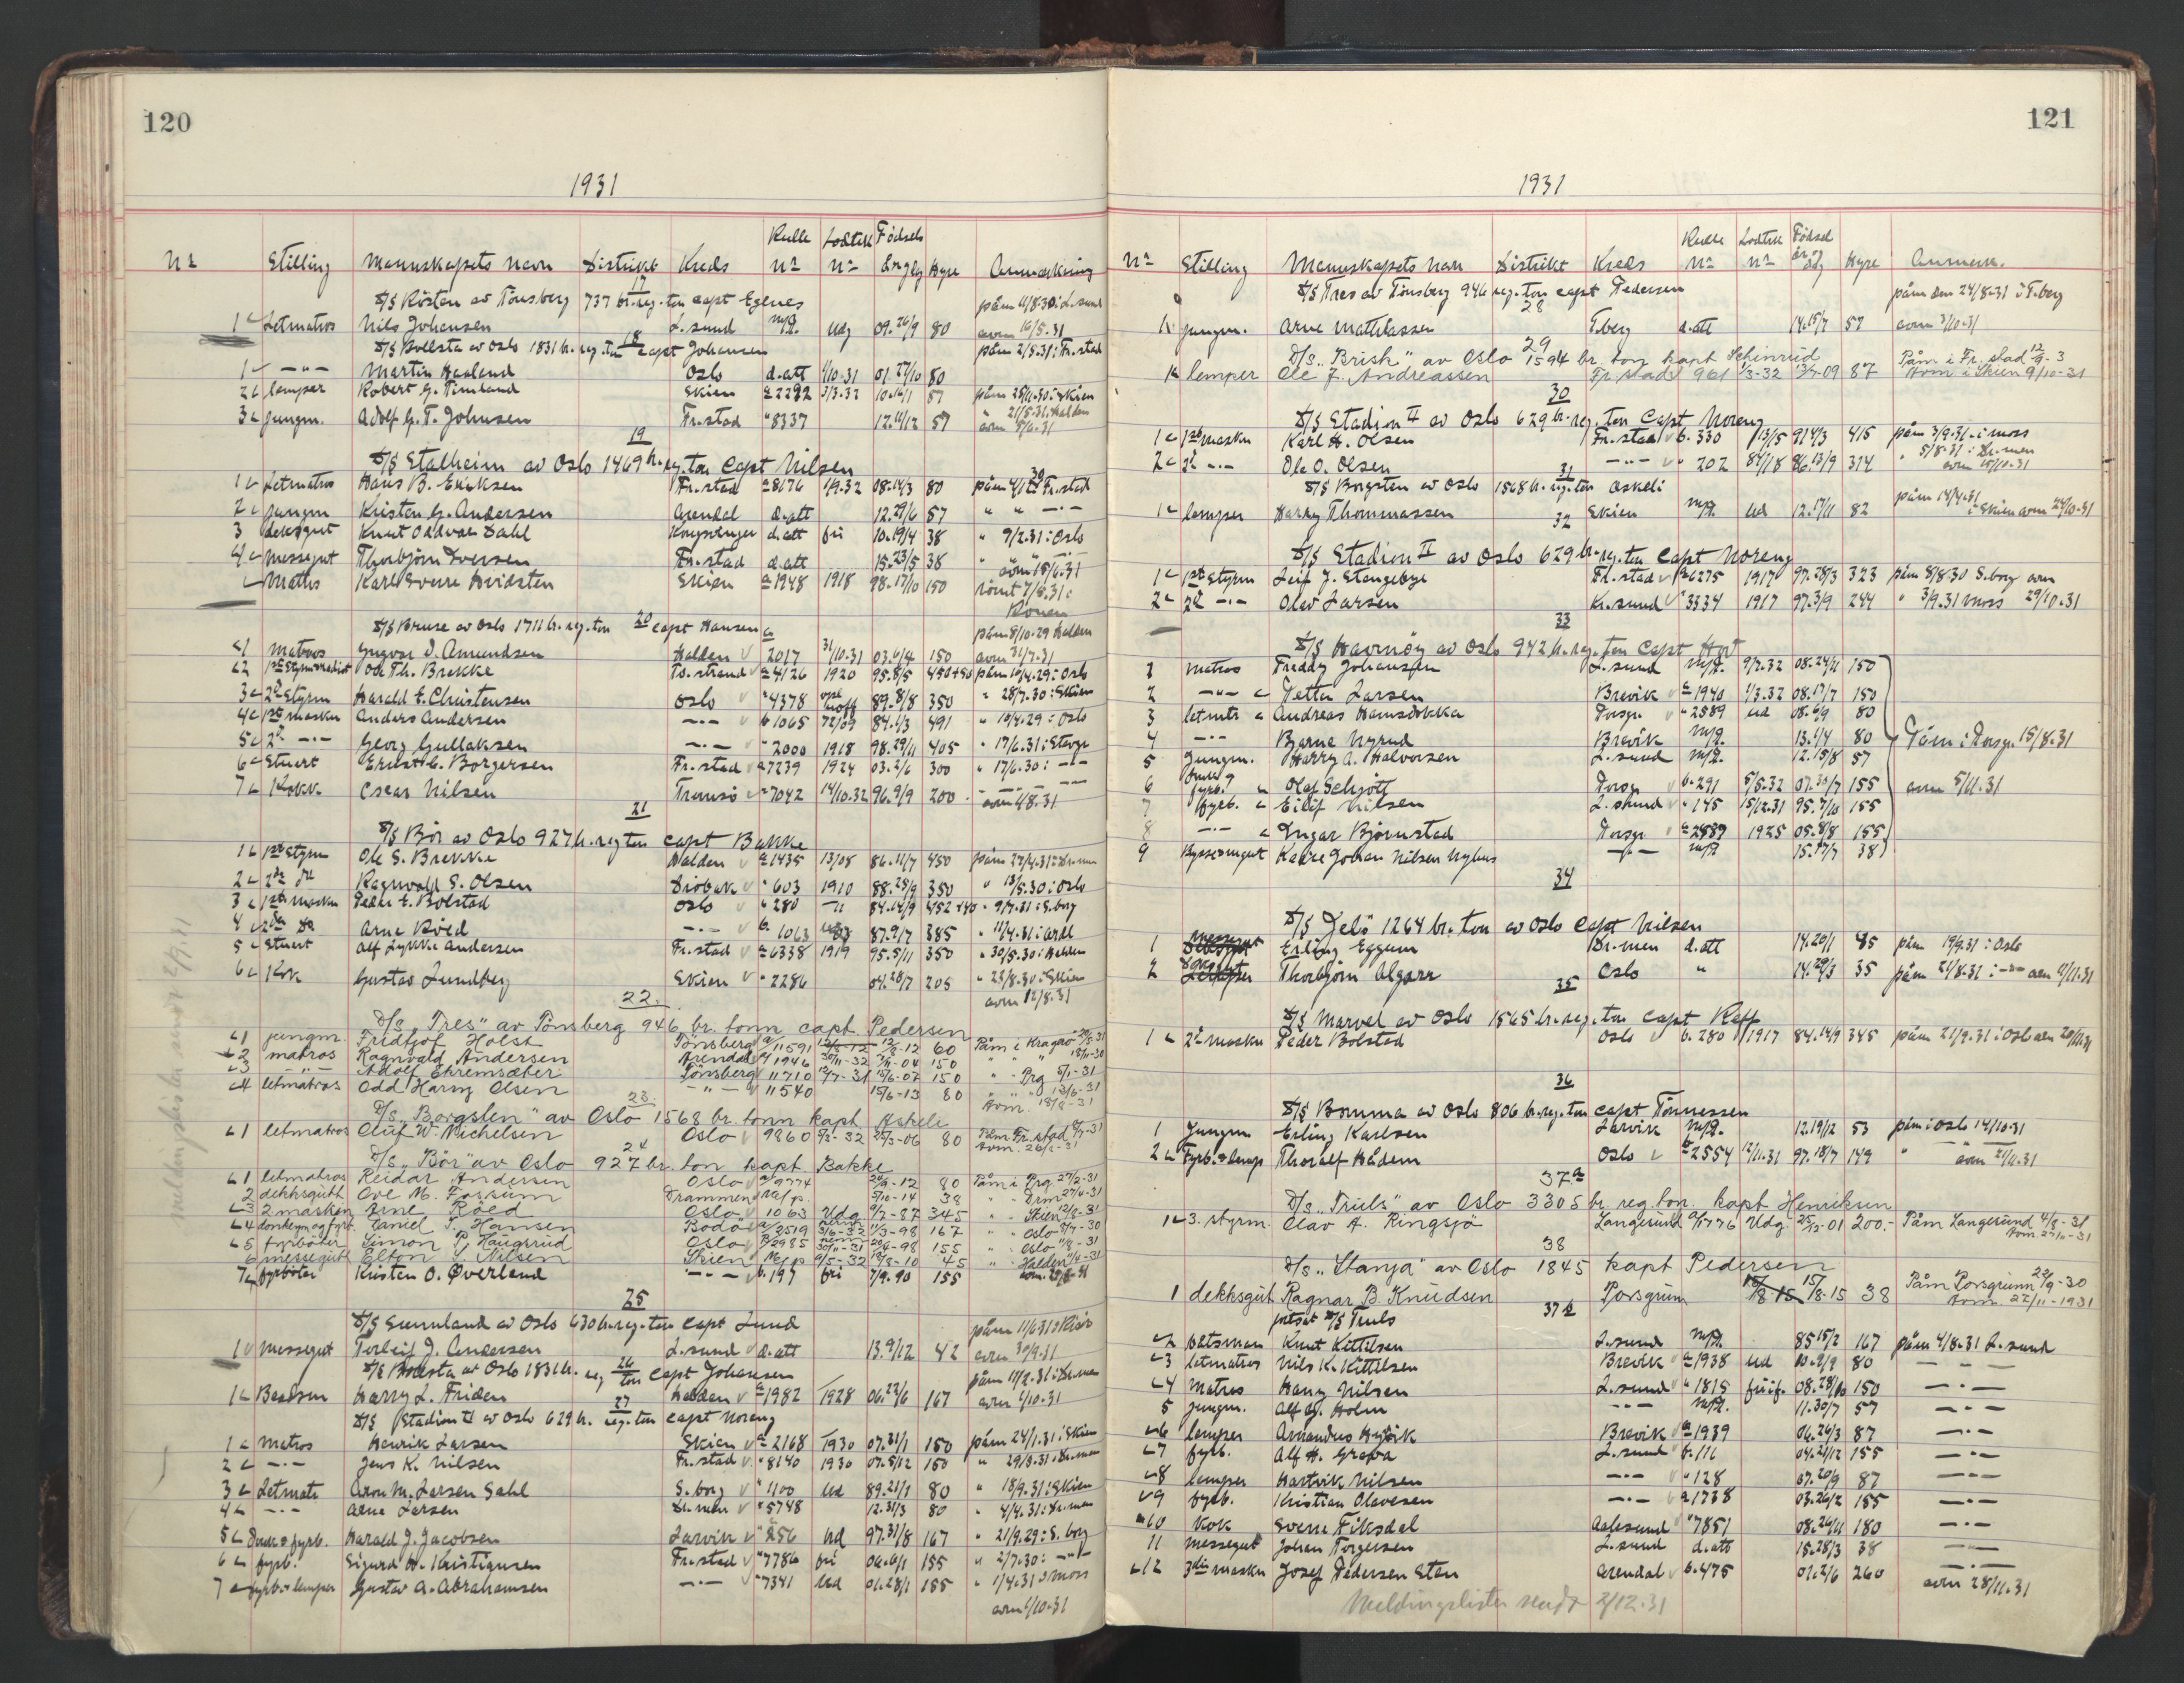 120
1931
No Stilling Mannskapets navn Distrikt Kreds Rulle No Lodtræk No Fødsels År og Dg Hyre Anmerkning
17
D/S Rösten av Tönsberg 737 br.reg.ton capt Egenes påm 11/8.30 i L.sund
1 Letmatros Nils Johansen L.sund m/p. Udg 09.26/9 80 avm 16/5.31
18
D/S Bollsta av Oslo 1831 br.reg.ton capt Johansen påm 2/5.31 i Fr.stad
1 —"— Martin Haaland Oslo d.att 1/10.31 01.27/10 80
2 lemper Robert G. Timland Skien a 2292 1/3.32 87 påm
3 jungm. Adolf G. T. Johnsen Fr.stad " 8337 12.11/12 57 " 21/5.31 Halden avm 5/6.31
19
D/S Stalheim av Oslo 1469 br.reg.ton Capt Nilsen
1 Letmatros Hans B. Eriksen Fr.stad a 8176 1/9.32 08.14/3 80 påm Fr.stad
2 jungm Kristen G. Andersen Arendal d.att 12.29/6 57 " " —"—
3 deksgut Knut Oddvar Dahl Kongsvinger d.att fri 10.19/4 38 " 9/2.31 i Oslo
4 messegut Thorbjörn Iversen Fr.stad d.att 15.23/5 38 avm 15/6.31
Matros Karl Sverre Hvidsten Skien a 1948 1918 98.17/10 150 römt 7/8.31 i Rouen
20
D/S Bruse av Oslo 1711 br.reg.ton capt Hansen påm 8/10.29 Halden
1 Matros Yngvar D. Amundsen Halden a 2017 31/10.31 03.6/4 150 avm 31/7.31
2 1ste styrm Ole Th. Brekke a 4126 1920 95.8/5 450+50 påm 10/4.29 i Oslo
3 2den Styrm Harald E. Christensen Oslo " 4378 89.8/8 350 " 28/7.30 i Skien
4 1ste maskn Anders Andersen —"— b 1065 72/09 89.1/3 491 " 10/4.29 i Oslo
5 2d —"— Georg Gullaksen —"— " 2000 1918 98.29/11 405 " 17/6.31 i
6 Stuert Ernst C. Borgersen Fr.stad a 7239 1924 03.2/6 300 " 17/6.30 i —"—
7 Kokk Oscar Nilsen Tromsö " 7042 14/10.32 96.9/9 200 avm 1/8.31
21
D/S Bör av Oslo 927 br.reg ton capt Bakke
1 1ste Styrm Ole S. Brekke Halden a 1435 13/08 86.11/7 450 påm 27/4.31 i Dr.men
2 2den do Ragnvald S. Olsen Dröbak " 603 1910 88.25/9 350 " 13/5.30 i Oslo
3 1ste maskn Peder E. Bolstad Oslo " 280 —"— 84.14/9 452+40 " 9/7.31 i S.borg
4 2den do Arne Röed —"— b. 1063 87.9/7 385 " 11/4.31 i
5 Stuert Alf Lykke Andersen Fr.stad a 6338 1919 95.5/11 350 " 30/5.30 i Halden
6 Kok Gustav Lundberg Skien " 2286 04.28/7 205 " 23/8.30 i Skien avm 12/8.31
22.
D/S. "Tres" av Tönsberg 946 br. tonn capt. Pedersen
1 jungm. Fridtjof Holst Tönsberg a/11591 12/8-12 60 Påm i Kragerö
2 matros Ragnvald Andersen Arendal a/1946 30/11-32 7/11-04 150 " " " 18/11-30
3 —"— Adolf Ehremsæter Tönsberg 11710 12/7-31 15/6-07 150 " Prg 5/1-31
4 letmatros Odd Harry Olsen —"— 11540 15/6-13 80 " " 13/6-31 Avm. 18/8-31
23.
D/S. "Borgsten" av Oslo 1568 br. tonn kapt Askeli
1 letmatros Oluf W. Michelsen Oslo 9860 25/3-06 80 Påm Fr.stad Avm. 26/8-31
24
D/S. "Bör" av Oslo 927 br. ton kapt. Bakke
1 letmatros Reidar Andersen Oslo a/9774 80 Påm i Prg. 27/2-31
2 dekksgutt Ove M. Fossum Drammen m/p. 5/10-14 38 " " Drm 27/4-31
3 2 maskin Arne Röed Oslo 1063 Udg 9/7-87 345 " Skien 12/8-31
4 donkeym og fyrb. Daniel P. Hansen Bodö a/2519 31/6-32 11/3-98 167 " " Oslo 8/7-30
5 fyrböter Simon P. Haugsrud Oslo B/2985 30/11-31 20/6-98 155 " Oslo
6 messegutt Elton S. Nilsen Skien m/p 9/5-32 18/3-10 45 " Halden
7 fyrböter Kristen O. Øverland —"— b. 197 fri 7/9.90 155
25
D/S Sunnland av Oslo 630 br.reg.ton Capt Lund påm 11/6 31 i
1 Messegut Torleif J. Andersen L.sund d.att 13.9/12 42 avm 30/9.31
26
D/S Bollsta av Oslo 1831 br. reg ton Capt Johansen påm 11/2.31 i Dr.men
1 Baadsm Harry L. Friden Halden a 1982 1928 06.22/6 167 avm 1/10.31
27
D/S Stadion II av Oslo 629 br. reg.ton capt Noreng
1 Matros Henrik Larsen Skien a 2168 1930 07.31/1 150 påm 24/1.31 i Skien
2 —"— Jens K. Nilsen Fr.stad " 8140 1930 07.5/12 150 " 29/3.31 i Dr.men
3 Letmatr Aron M. Larsen Dahl S.borg " 1100 Ud 89.21/1 80 " 18/9.31 i Skien
4 —"— Arne Larsen Dr.men " 5748 12.31/3 80 " 4/4.31 i Dr.men
5 Donk o fyrb. Harald J. Jacobsen Larvik " 256 Ud 97.31/8 167 " 21/9.29 i S.borg
6 fyrb. Sigurd H. Kristiansen Fr.stad " 7786 fri 06.6/1 155 " 2/7.30 i —"—
7 fyrb o lemper Gustav A. Abrahamsen —"— " 7341 Ud 01.28/1 155 " 1/4.31 i Moss avm 1/10.31
121
1931
No Stilling Mannskapets navn Distrikt Kreds Rulle No Lodtræk No Fødsel år og dg Hyre Anmerk.
D/S Tres av Tönsberg 946 reg.ton capt Pedersen påm den 24/8.31 i T.berg
28
1 jungm. Arne Mathiassen T.berg d.att 14.15/7 57 avm 3/10.31
29
D/S. "Brisk" av Oslo 1594 br. ton kapt Schinrud Påm i Fr.stad
1 lemper Ole J. Andreassen Fr.stad 961 1/3-32 13/7-09 87 Avm i Skien 9/10-31
30
D/S Stadion II av Oslo 629 br.reg.ton Capt Noreng
1 1ste maskn Karl H. Olsen Fr.stad b. 330 13/5 91 4/3 415 påm 3/9.31 i Moss
2 2d —"— Ole O. Olsen —"— " 202 84/18 86.13/9 314 " 5/8.31 i Dr.men avm 15/10.31
31
D/S Borgsten av Oslo 1568 br.reg.ton Askeli
1 lemper Harry Thommassen Skien m/p. Ud 12.17/11 82 påm 14/4.31 i Skien avm 24/10.31
32
D/S Stadion II av Oslo 629 br.reg.ton Capt Noreng
1 1ste Styrm Leif J. Stangebye Fr.stad a 6275 1917 97.28/3 323 påm 8/8.30 S.borg avm
2 2d —"— Olav Larsen Kr.sund " 3334 1917 97.3/9 244 " 3/9.31 Moss 29/10.31
33
D/S Havnöy av Oslo 942 br.reg.ton Capt
1 matros Freddy Johansen L.sund m/p. 9/7.32 08.24/11 150
2 —"— Petter Larsen Brevik a 1940 1/3.32 08.17/7 150
3 letmtr Andreas Hamsokka Porsgr. " 2589 ud 08.6/9 80
4 —"— Bjarne Nyrud Brevik m/p. 13.1/4 80 Påm i Porsgr. 15/8.31
5 Jungm. Harry A. Halvorsen L.sund m/p. 12.15/8 57
6 Donk o fyrb. Olaf Schjött Porsgr b. 291 5/5.32 07.30/7 155 avm 5/11.31
7 fyrb. Eilif Nilsen L.sund " 145 15/12.31 95.7/10 155
8 —"— Ingar Björnstad Porsgr a 2539 1925 05.8/8 155
9 Byssegut Kaare Johan Nilsen Nyhus —"— m/p 15.17/7 38
34
D/S Jelö 1264 br.ton av Oslo Capt Nilsen
1 messegut Erling Eggum Dr.men d.att 14.20/1 45 påm 19/9.31 i Oslo
2 Thorbjörn Algarr Oslo " 14.29/3 35 påm 21/8.31 i —"—
35
D/S Marvel av Oslo 1565 br.reg.ton Capt Raff
1 2d maskn Peder Bolstad Oslo b. 280 1917 84.14/9 345 påm 21/9.31 i Oslo
36
D/S Bomma av Oslo 806 br.reg.ton capt Tönnessen
1 Jungm Erling Karlsen Larvik m/p. 12.19/12 53 påm i Oslo 14/10.31
2 Fyrb. o lemp Thoralf Hådem Oslo b 2554 12/11.31 97.18/7 149 " avm 21/11.31
37a
D/S. "Truls" av Oslo 3305 br reg ton. kapt Henriksen
1 3. styrm. Olav A. Ringsjö Langesund a/1776 Udg. 25/12-01 200.- Påm Langesund 4/8-31 Avm. 27/11-31
38
D/S. "Stanja" av Oslo 1845 kapt Pedersen
1 dekksgut Ragnar B. Knudsen Porsgrunn 15/8-15 15/8-15 38 Påm Porsgrunn 22/9-30 Avm. 27/11-1931
37b
fortsat D/S Truls
2 Båtsman Knut Kittilsen L.sund m/p. 85 15/2 167 påm 4/8.31 L.sund
3 letmatros Nils K. Kittilsen Brevik a 1938 ud 10.9/9 80 — " —
4 Matros Harry Nilsen L.sund " 1815 08.28/10 150 —"—
5 jungm. Alf G. Holm —"— m/p. 11.30/7 57 —"—
6 lemper Amandus Brevik a 1939 06.26/3 87 —"—
7 fyrb. Alf H. Grava L.sund b. 116 04.21/12 155 —"—
8 lemper Hartvik Nilsen —"— " 128 07.20/9 87 —"—
9 fyrb. Kristian Olavesen —"— a 1738 03.26/2 155 —"—
10 Kok Sverre Fiksdal Aalesund " 7851 08.26/11 180 —"—
11 messegut Johan Torgersen L.sund d.att 15.28/3 38 —"—
12 3die maskn Josef Pedersen Sten Arendal b. 475 01.2/6 260 —"— avm 28/11.31
Meldingslister sendt 2/12.31